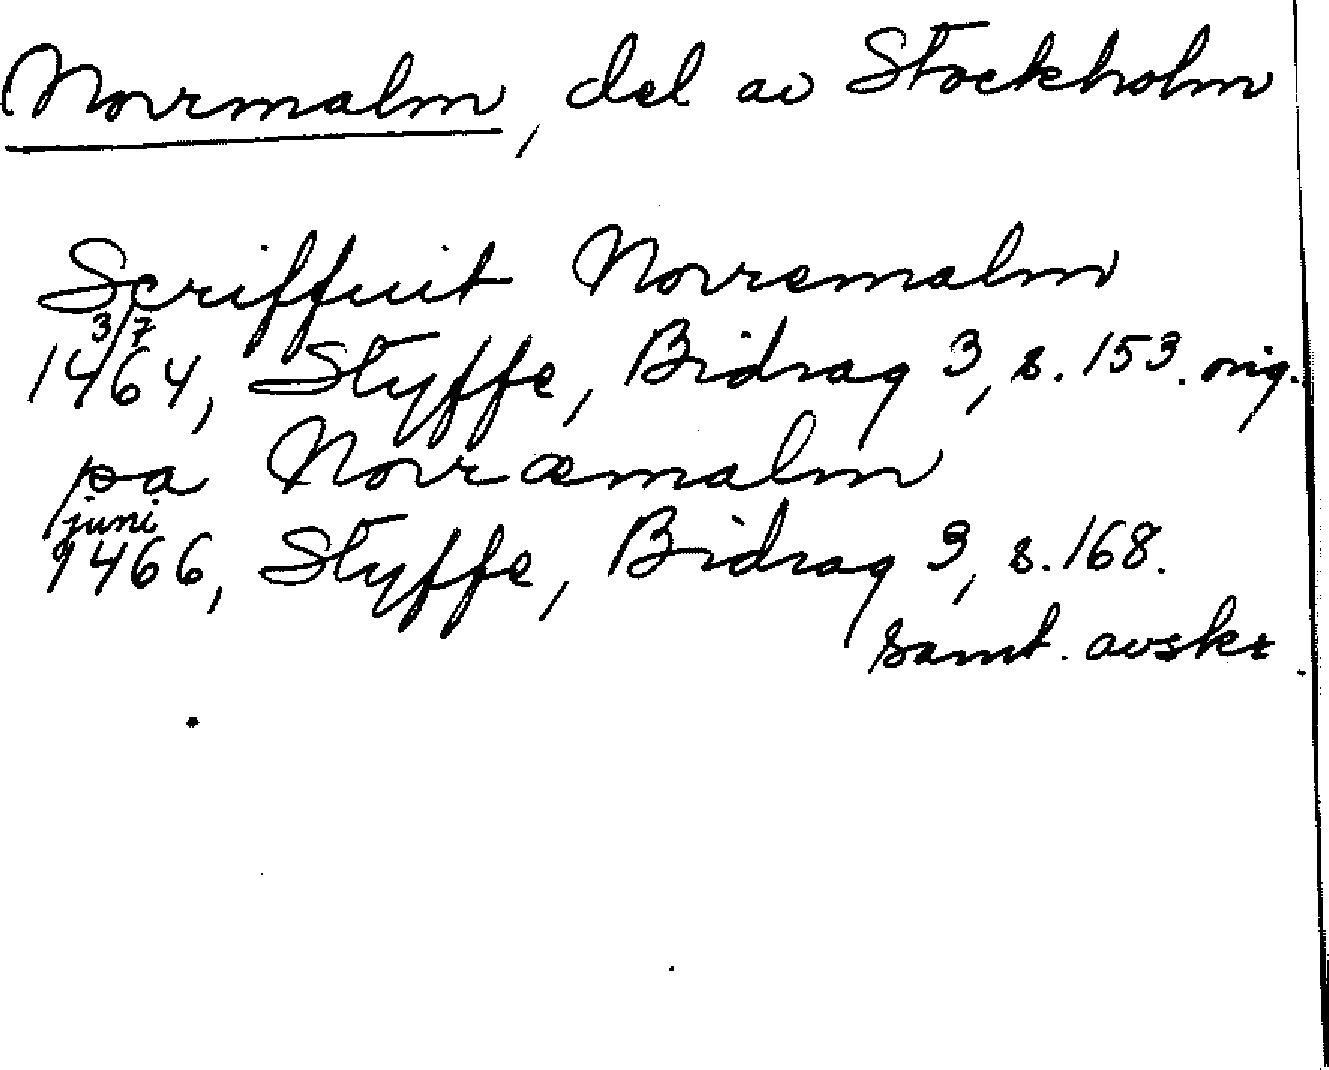 Norrmalm, del av Stockholm
Scriffuit Norremalm
3/7
1464, Styffe, Bidrag 3, s. 153. orig.
pa Norræmalm
juni
1466, Styffe, Bidrag 3, s. 168.
samt. avskr